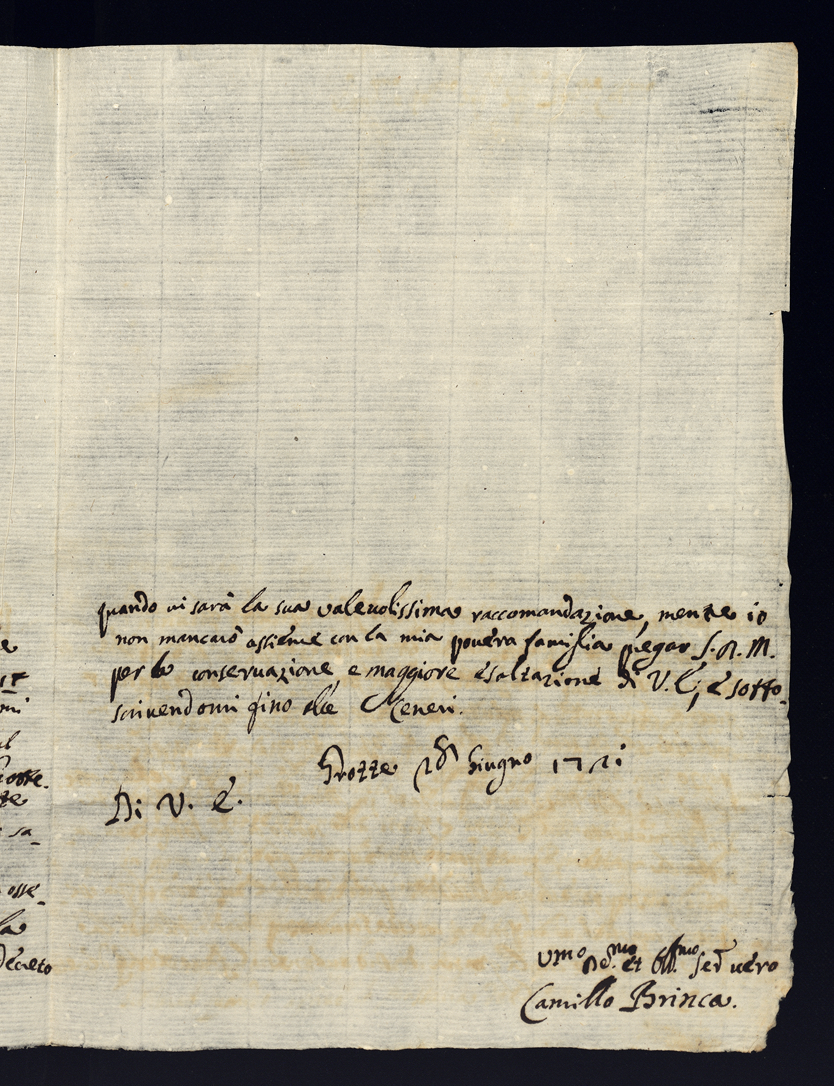 quando vi sarà la sua valevolissima raccomandazione, mentre io
non mancarò assieme con la mia povera famiglia pregar S. D. M.
per la conservazione, e maggiore esaltazione di V. E., e sotto-
scrivendomi fino alle Ceneri.
Grotte Giugno
Di V. E.
Umo et serv vero
Camillo Brinca.
osse-
la
decreto